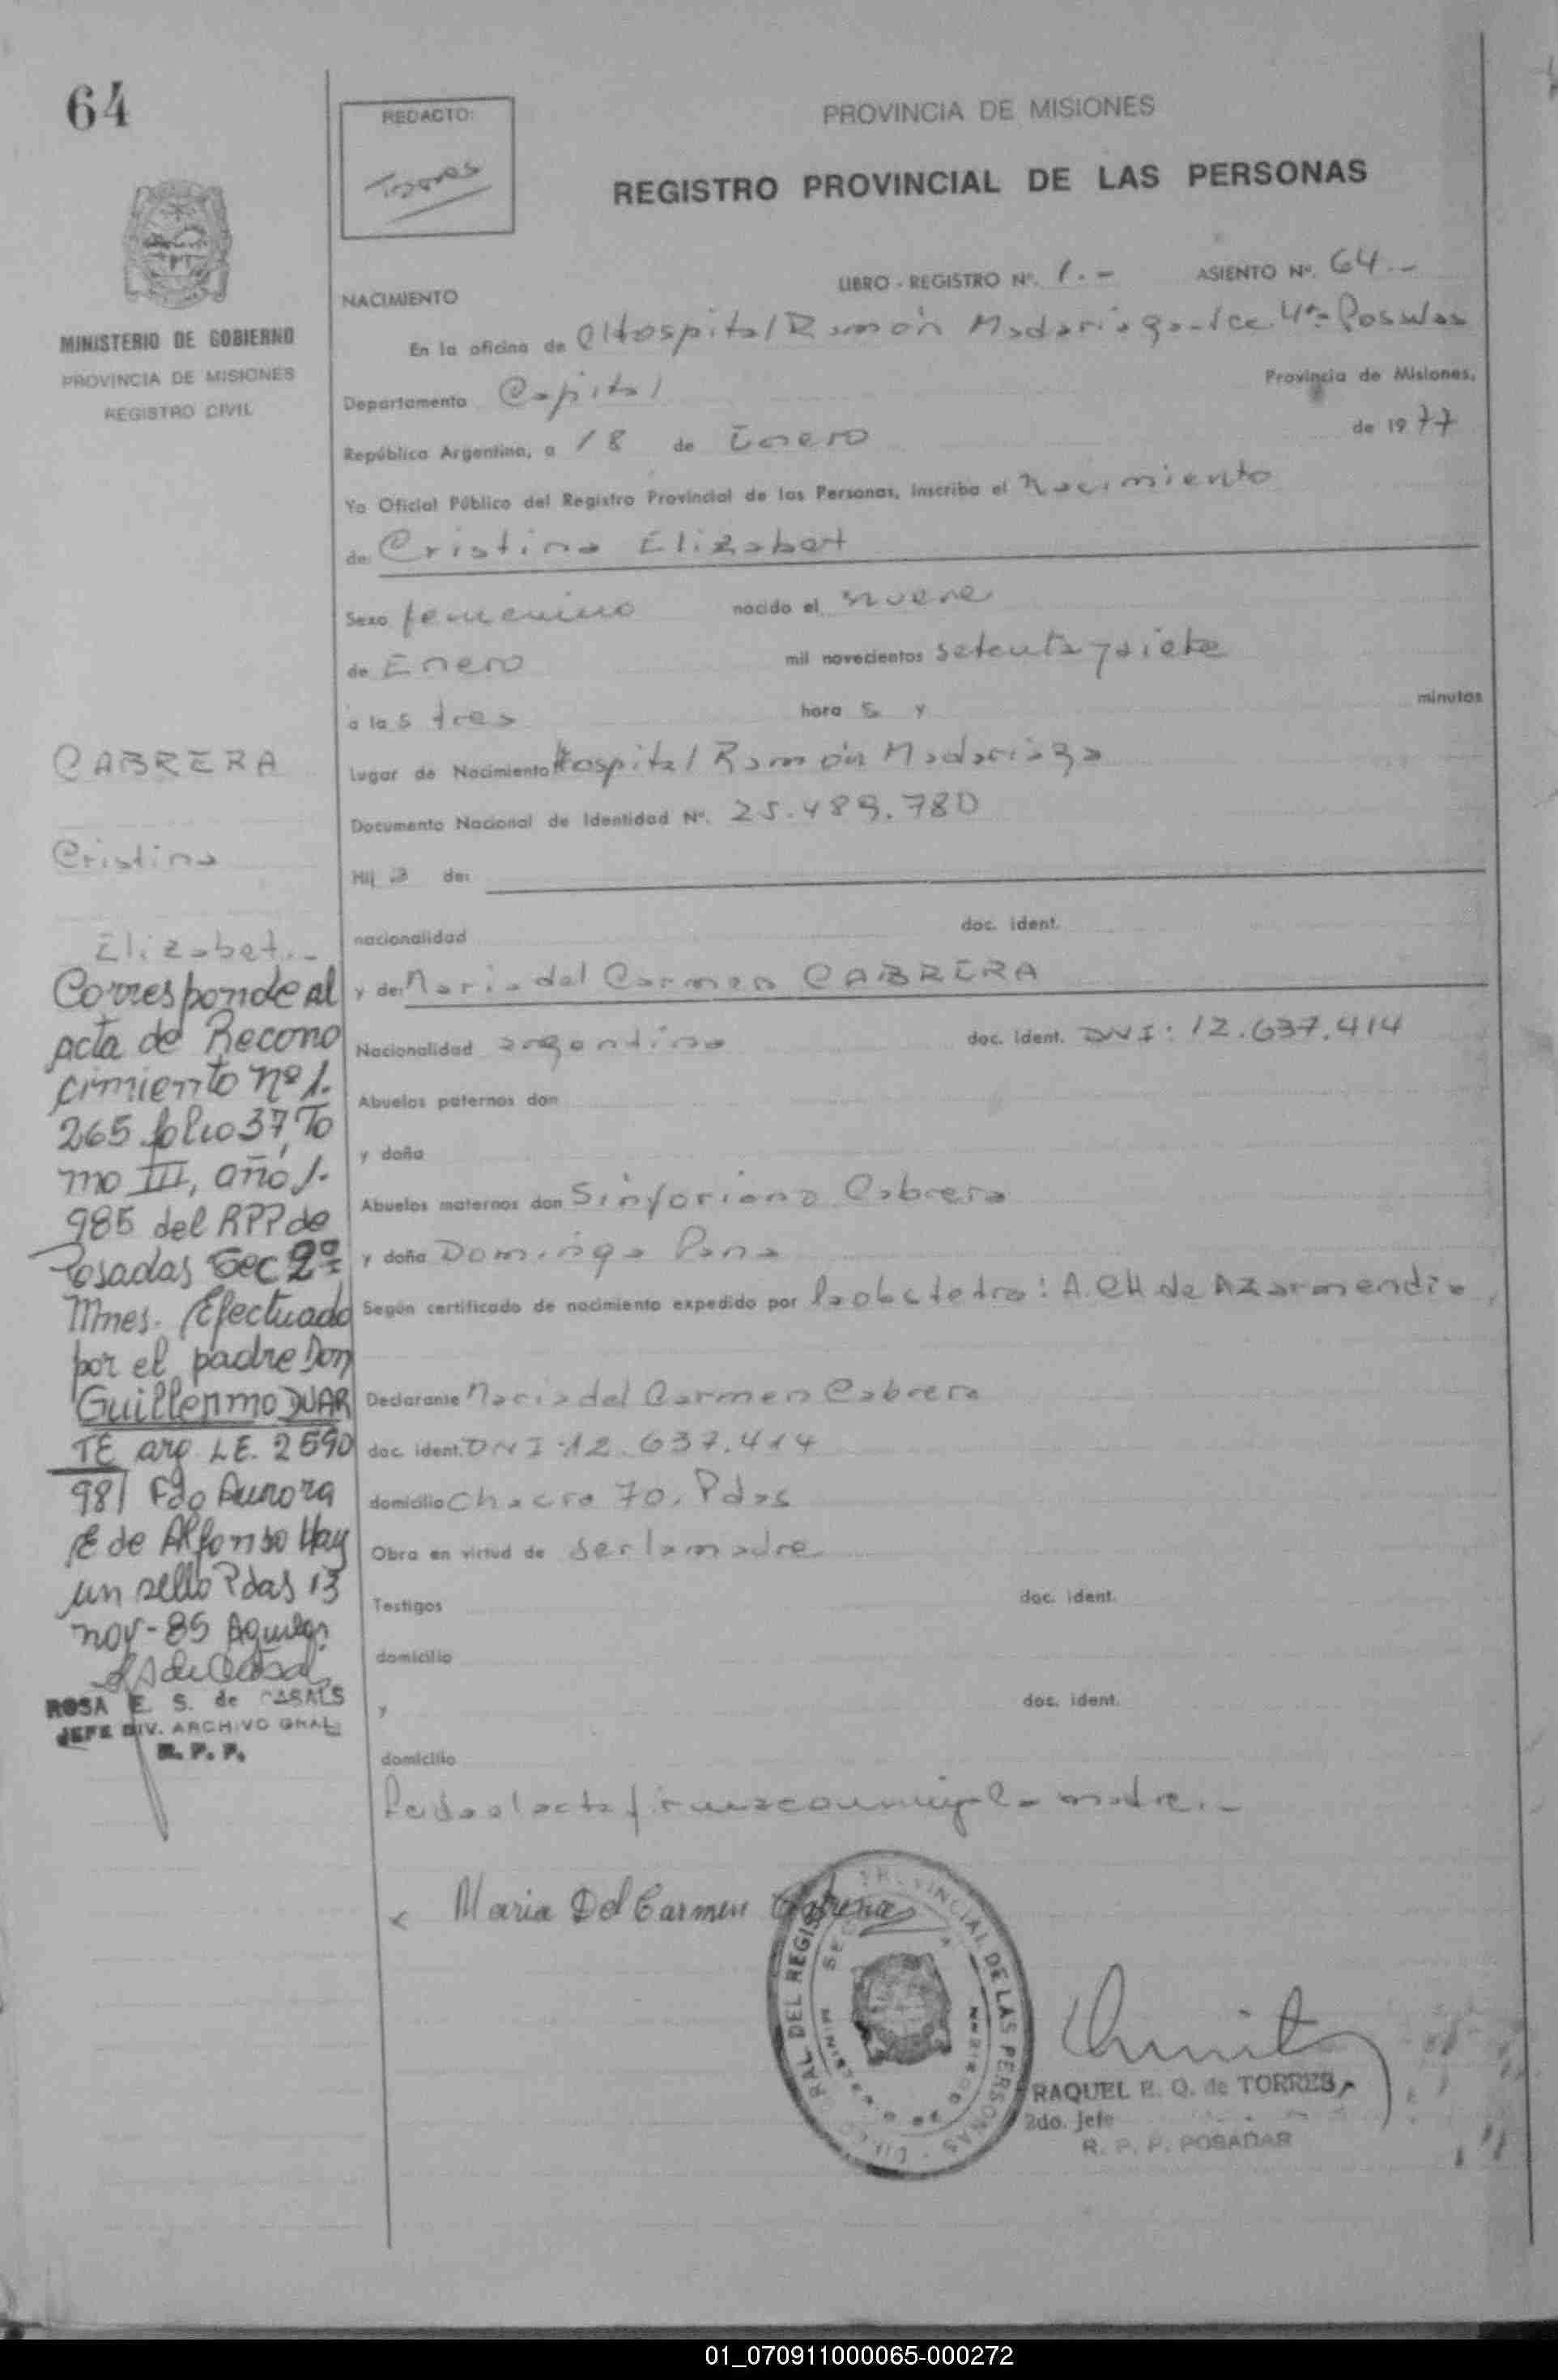 64
REDACTO:
Torres
PROVINCIA DE MISIONES
REGISTRO PROVINCIAL DE LAS PERSONAS
MINISTERIO DE GOBIERNO
PROVINCIA DE MISIONES
REGISTRO CIVIL
NACIMIENTO
LIBRO - REGISTRO Nº. 1.- ASIENTO Nº. 64.-
En la oficina de Hospital Ramón Madariaga 4ta Posadas
Departamento Capital Provincia de Misiones,
República Argentina, a 18 de Enero de 1977
Yo Oficial Público del Registro Provincial de las Personas, inscribo el Nacimiento
de: Cristina Elizabet
Sexo femenino nacido el nueve
de Enero mil novecientos setenta y siete
a las tres hora s y minutos
Lugar de Nacimiento Hospital Ramón Madariaga
Documento Nacional de Identidad Nº. 25.489.780
Hij a de:
nacionalidad doc. ident.
y de: Maria del Carmen CABRERA
Nacionalidad argentina doc. ident. DNI: 12.637.414
Abuelos paternos don
y doña
Abuelos maternos don Sinforiano Cabrera
y doña Dominga
Según certificado de nacimiento expedido por la obstetra: A. CH de Azarmendia
Declarante Maria del Carmen Cabrera
doc. ident. DNI 12.637.414
domicilio Chacra 70. Pdas
Obra en virtud de ser la madre
Testigos doc. ident.
domicilio
y doc. ident.
domicilio
Leida el acta firma conmigo la madre.-
CABRERA
Cristina
Elizabet.-
Corresponde al
acta de Recono
cimiento nº 1.
265 folio 37, To
mo III, año 1.
985 del RPP de
Posadas Sec 2ª
Mnes. Efectuado
por el padre Don
Guillermo DUAR
TE arg LE. 2590
981 Fdo Aurora
E de Alfonso Hay
un sello Pdas 13
nov-85
ROSA E. S. de CASALS
JEFE DIV. ARCHIVO GRAL.
R. P. P.
x Maria Del Carmen Cabrera
RAL DEL REGIS PROVINCIAL DE LAS PERSONAS
RAQUEL E. Q. de TORRES
2do. Jefe
R. P. P. POSADAS
01_070911000065-000272